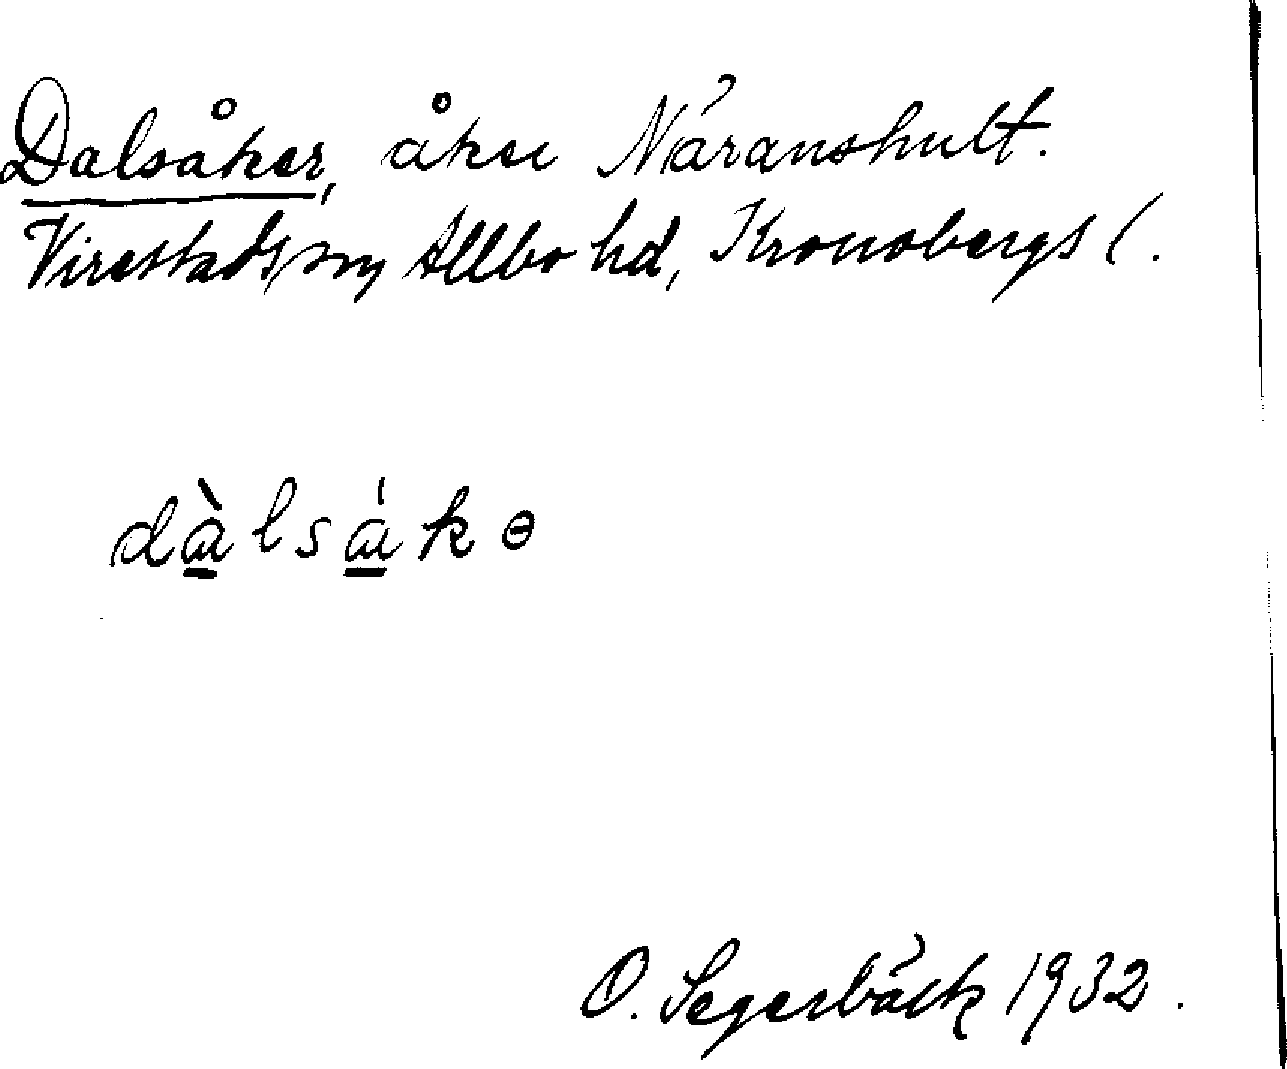 Dalsåker, åker Näranshult.
Virestads sn, Allbo hd, Kronobergs l.
dàlsákɵ
O. Segerbäck 1932.